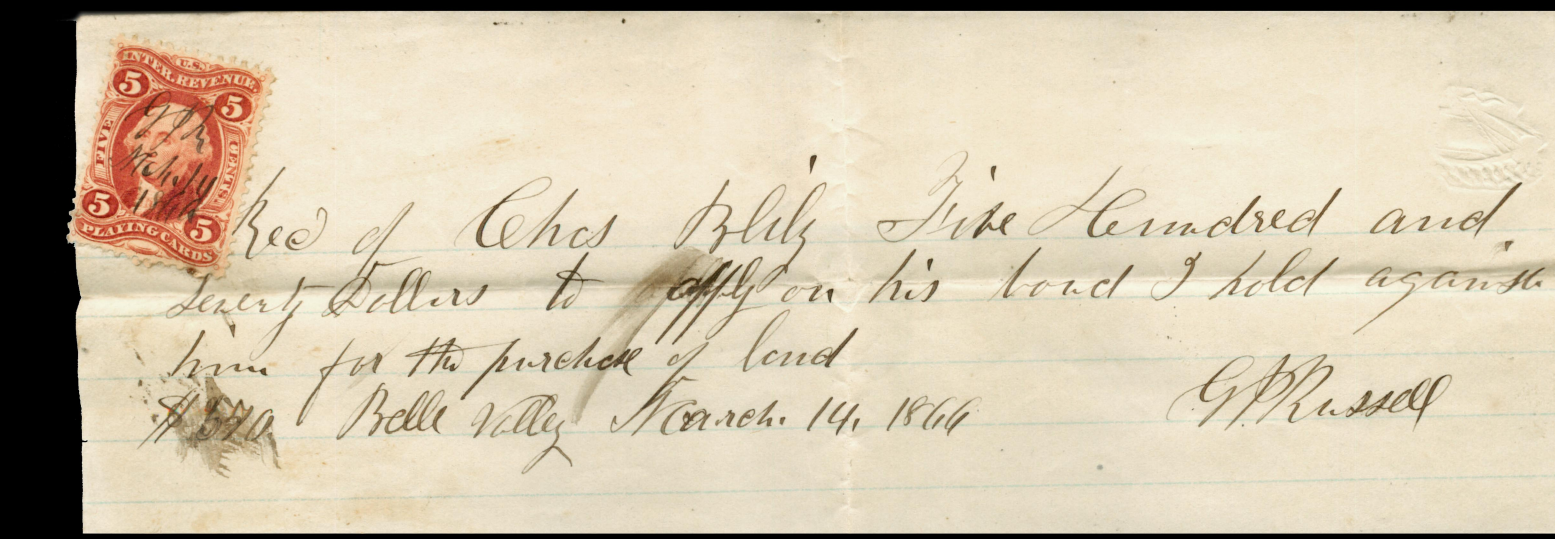 U.S.
INTER. REVENUE
5 5
FIVE CENTS.
5 5
PLAYING CARDS
Mch. 14
1866
Rec'd of Chas Five Hundred and
Seventy Dollars to apply on his bond I hold against
him for the purchase of land
$570 Belle Valley March. 14. 1866
G P Russell